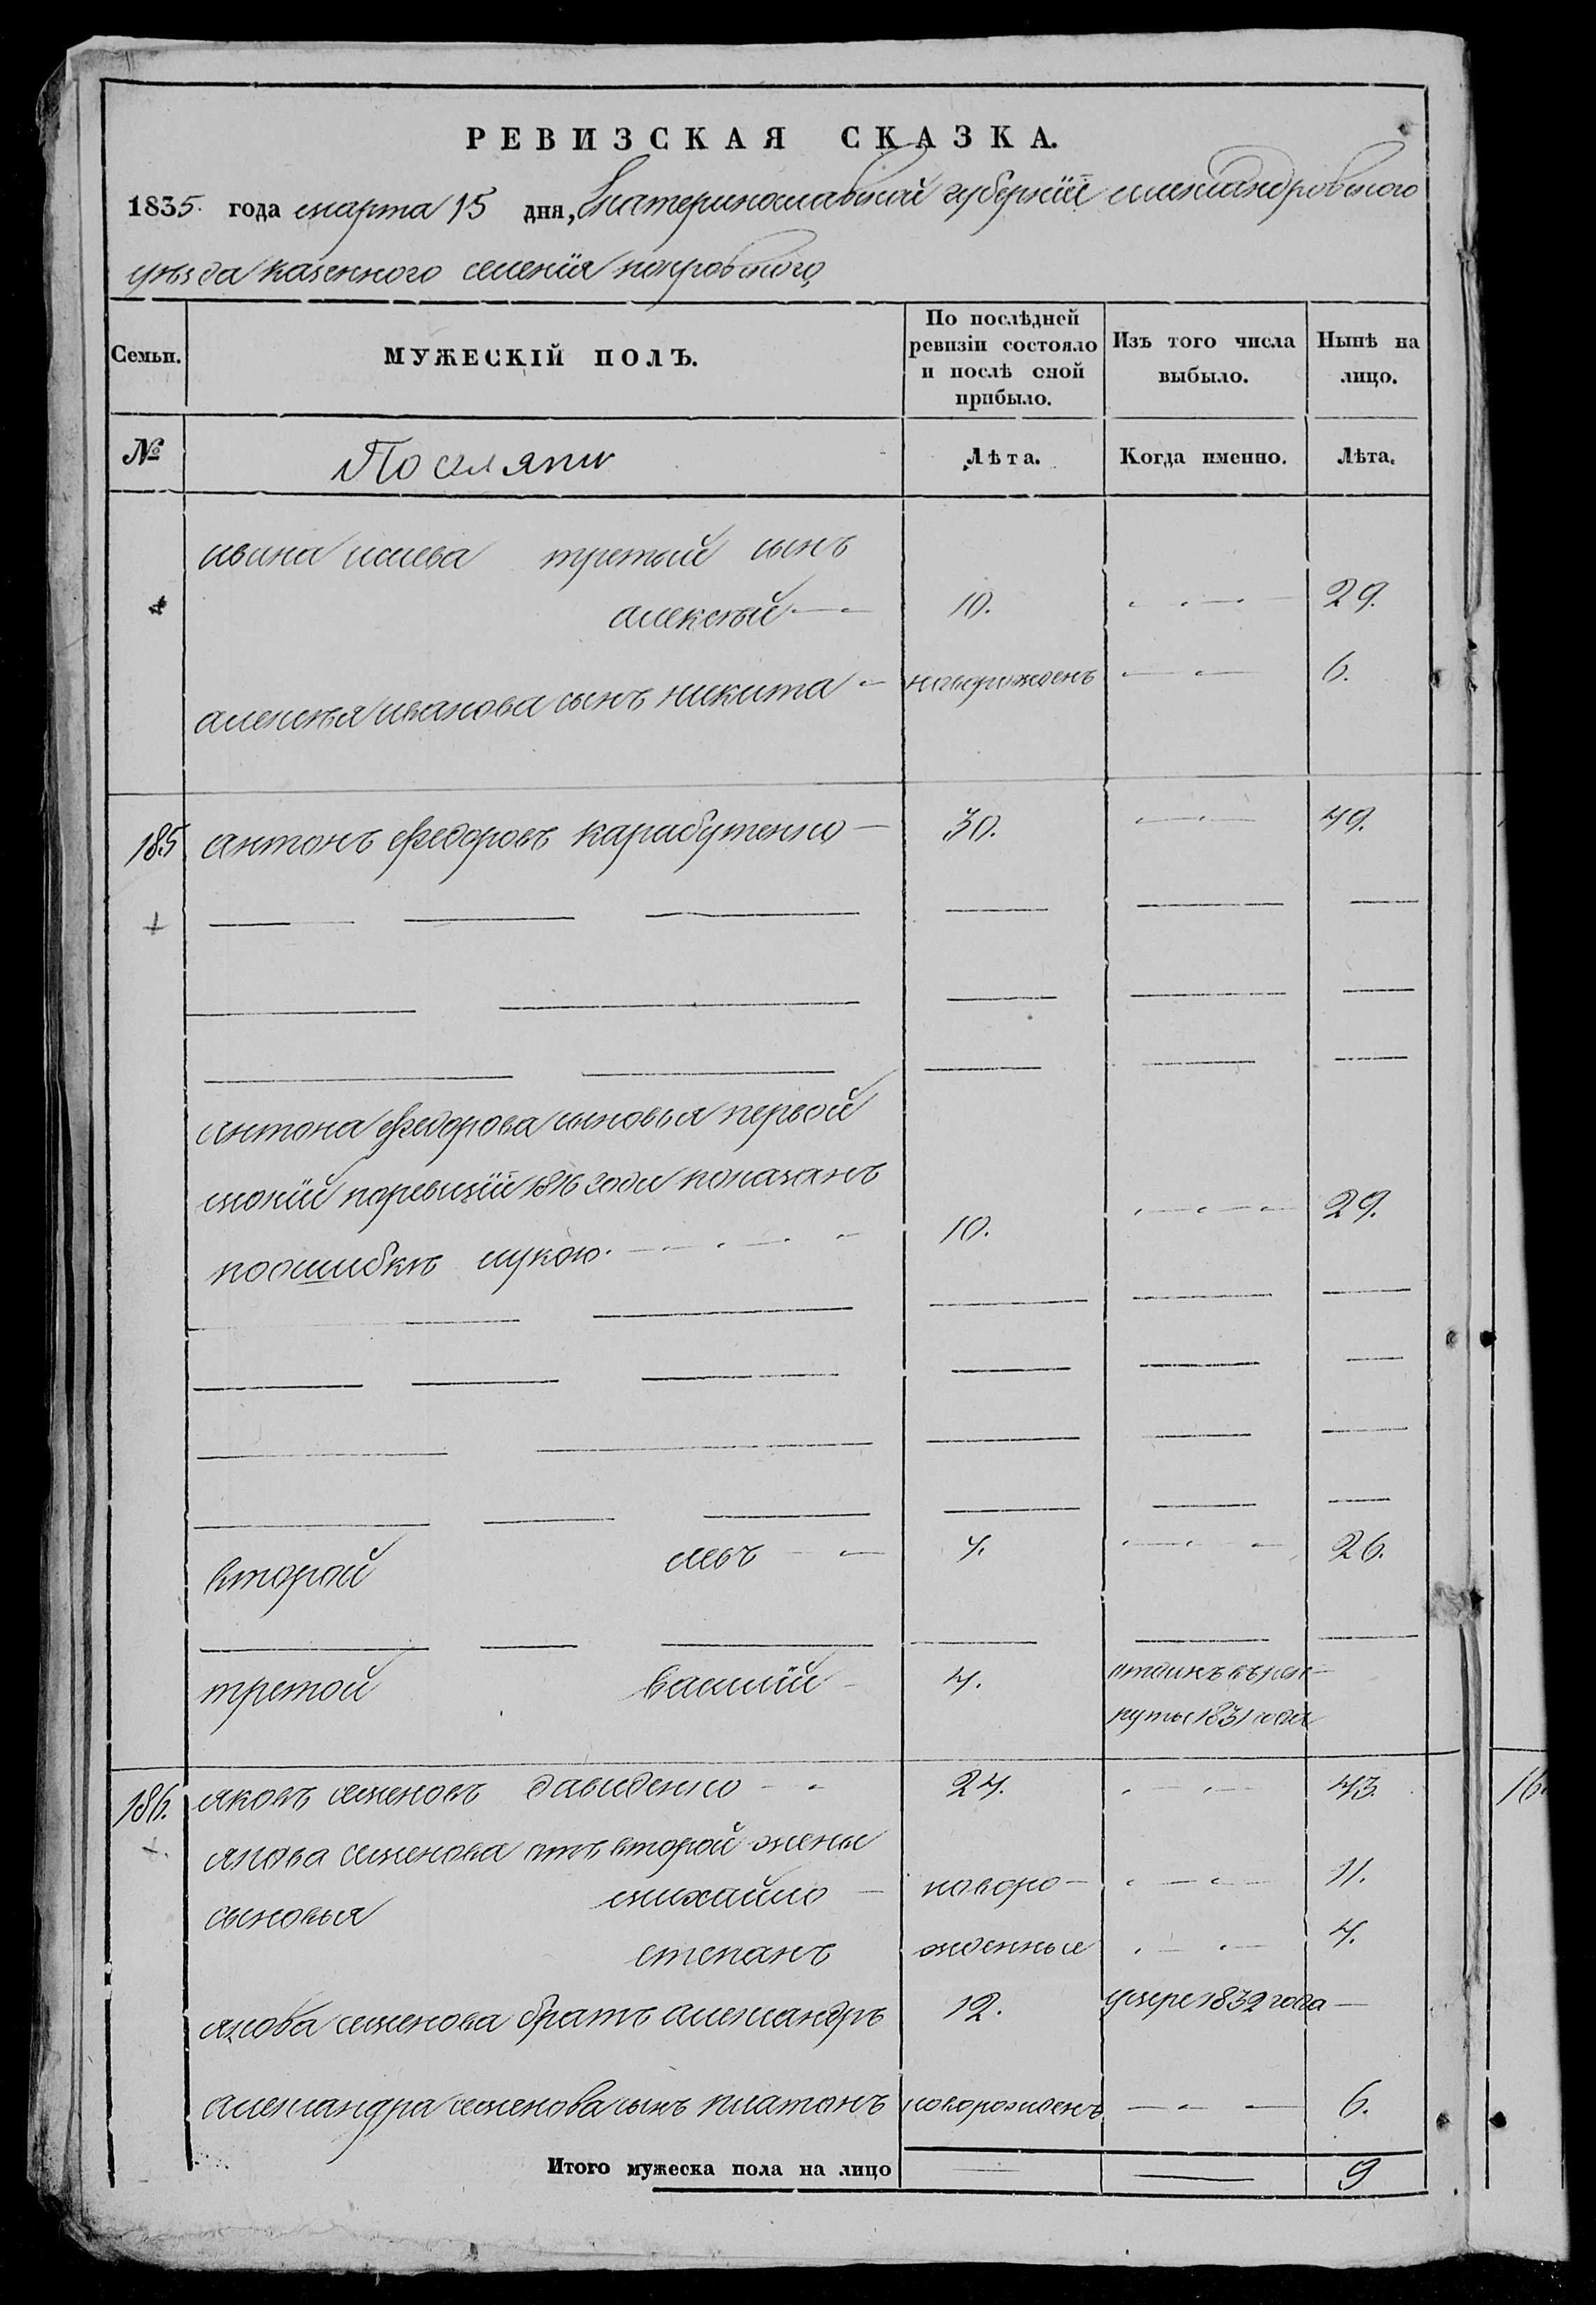 РЕВИЗСКАЯ СКАЗКА.
1835. года марта 15 дня, Екатеринославской губернїи александровского
уѣзда казенного селенїя покровского
Семьи. МУЖЕСКІЙ ПОЛЪ. По послѣдней ревизіи состояло и послѣ оной прибыло. Изъ того числа выбыло. Нынѣ на лицо.
№ Поселяни Лѣта. Когда именно. Лѣта.
ивана исаева третой сынъ
алексѣй 10. 29.
алексѣя иванова сынъ никита новорожденъ 6.
185 антонъ федоровъ карабутенко 30. 49.
антона федорова сыновья первой
мокїй поревизїи 1816 года показанъ
поошибкѣ лукою. 10. 29.
второй левъ 7. 26.
третой василїй 4. отданъ врек-
руты 1831 года
186. яковъ семеновъ давиденко 24. 43.
якова семенова отъ второй жены
сыновья михайло новоро- 11.
степанъ жденные 4.
якова семенова братъ александръ 12. умре 1832 года
александра семенова сынъ платонъ новорожденъ 6.
Итого мужеска пола на лицо 9
16.